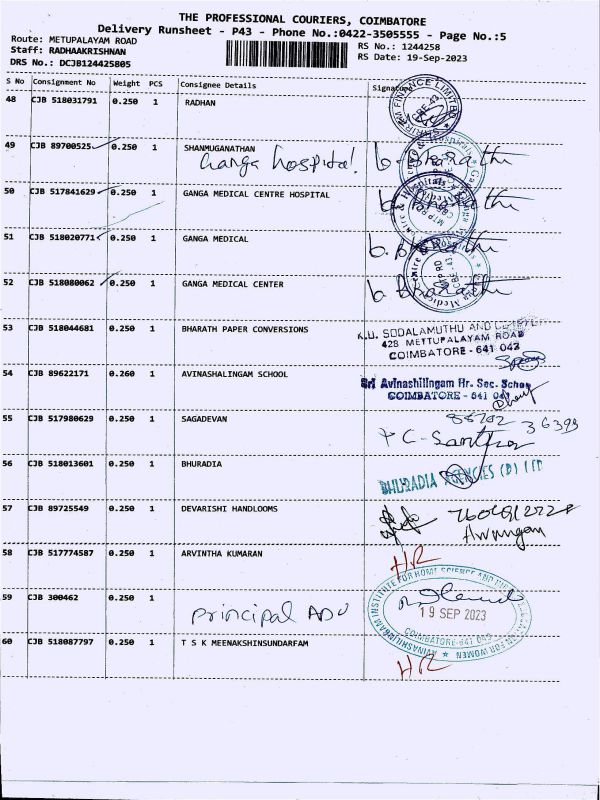 THE PROFESSIONAL COURIERS, COIMBATORE
Delivery Runsheet - P43 - Phone No.:0422-3505555 - Page No.:5
Route: METUPALAYAM ROAD
Staff: RADHAAKRISHNAN
DRS No.: DCJB124425805
RS No.: 1244258
RS Date: 19-Sep-2023
S No Consignment No Weight PCS Consignee Details Signature
48 CJB 518031791 0.250 1 RADHAN
49 CJB 89700525 0.250 1 SHANMUGANATHAN
Ganga hospital! b. Bharathi
50 CJB 517841629 0.250 1 GANGA MEDICAL CENTRE HOSPITAL b. Bharathi
51 CJB 518020771 0.250 1 GANGA MEDICAL
b. Bharathi
52 CJB 518080062 0.250 1 GANGA MEDICAL CENTER b. Bharathi
53 CJB 518044681 0.250 1 BHARATH PAPER CONVERSIONS
K.U. SODALAMUTHU AND
428 METTUPALAYAM ROAD
COIMBATORE - 641 043
54 CJB 89622171 0.260 1 AVINASHALINGAM SCHOOL
Sri Avinashilingam Hr. Sec. School
COIMBATORE - 641 043
55 CJB 517980629 0.250 1 SAGADEVAN
36399
56 CJB 518013601 0.250 1 BHURADIA
BHURADIA AGENCIES (P) LTD
57 CJB 89725549 0.250 1 DEVARISHI HANDLOOMS
58 CJB 517774587 0.250 1 ARVINTHA KUMARAN
HR
59 CJB 300462 0.250 1
Principal ADU
AVINASHILINGAM INSTITUTE FOR HOME SCIENCE AND HIGHER EDUCATION FOR WOMEN
19 SEP 2023
COIMBATORE-641 043
60 CJB 518087797 0.250 1 T S K MEENAKSHINSUNDARFAM
HR